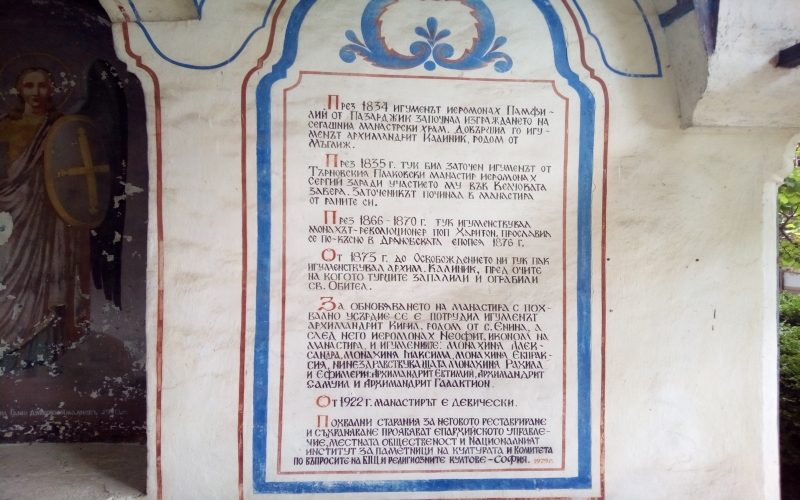 През 1834 игуменът иеромонах Памфи-
лий от Пазарджик започнал изграждането на
сегашния манастрски храм. Довършил го игу-
менът архимандрит Калиник, родом от
Мъглиж.
През 1835 г. тук бил заточен игуменът от
Търновския Плаковски манастир иеромонах
Сергий заради участието му във Велчовата
завера. Заточеникът починал в манастира
от раните си.
През 1866-1870 г. тук игуменствувал
монахът-революционер поп Харитон, прославил
се по-късно в Дряновската епопея 1876 г.
От 1873 г. до Освобождението ни тук пак
игуменствувал архим. Калиник, пред очите
на когото турците запалили и ограбили
св. Обител.
За обновяването на манастира с пох-
вално усърдие се е потрудил игуменът
архимандрит Кирил, родом от с. Енина, а
след него иеромонах Неофит, иконом на
манастира, и игумениите: монахиня Алек-
сандра, монахиня Максима, монахиня Евпрак-
сия, ниनेздравствуващата монахиня Рахила
и ефимерии: Архимандрит Евтимий, Архимандрит
Самуил и Архимандрит Галактион.
От 1922 г. манастирът е девически.
Похвални старания за неговото реставриране
и съхраняване проявяват епархийското управле-
ние, местната общественост и Националният
институт за паметници на културата и Комитета
по въпросите на БПЦ и религиозните култове - София.